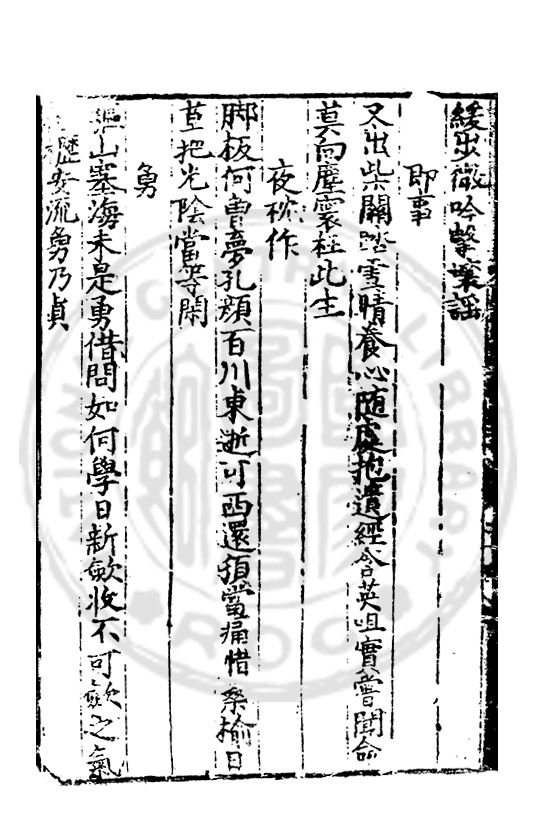 緩步微吟擊壤謠
即事
不出柴關踏雪晴養心隨處抱遺經含英咀實嘗聞命
莫向塵寰枉此生
夜枕作
脚板何曾夢孔顏百川東逝可西還須當痛惜桑榆日
莫把光陰當等閑
勇
山塞海未是勇借問如何學日新歛收不可歛之氣
歷安流勇乃貞